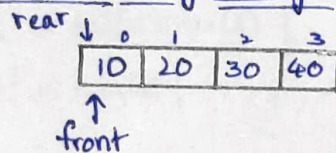 rear
0 1 2 3
10 20 30 40
front